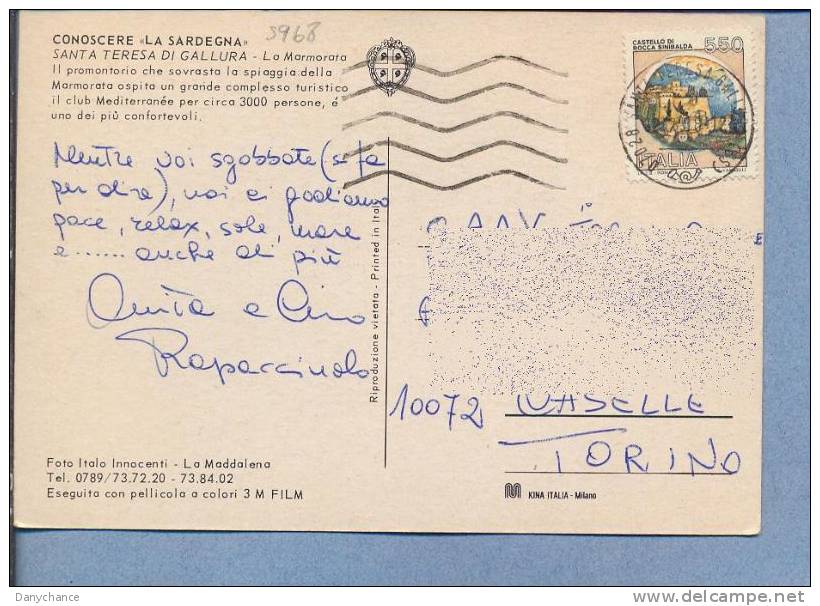 5968
CONOSCERE «LA SARDEGNA»
SANTA TERESA DI GALLURA - La Marmorata
Il promontorio che sovrasta la spiaggia della
Marmorata ospita un grande complesso turistico
il club Mediterranée per circa 3000 persone, é
uno dei più confortevoli.
Mentre voi sgobbate (si fa
per dire), noi ci godiamo
pace, relax, sole, mare
e...... anche di più
Anita e Ciro
Rapacciuolo
Foto Italo Innocenti - La Maddalena
Tel. 0789/73.72.20 - 73.84.02
Eseguita con pellicola a colori 3 M FILM
Riproduzione vietata - Printed in Ital
CASTELLO DI
ROCCA SINIBALDA
550
ITALIA
10072 CASELLE
TORINO
KINA ITALIA - Milano
Danychance
delcampe.net